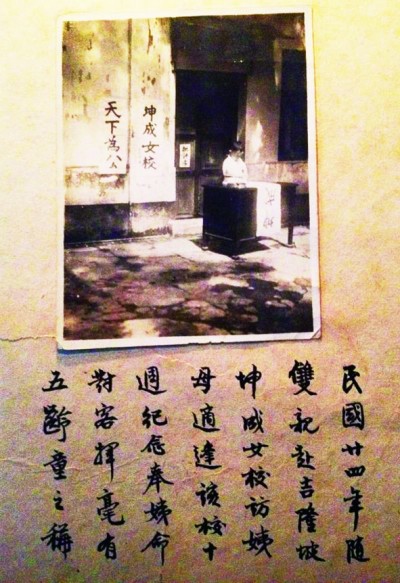 坤成女校
天下為公
民國廿四年隨
雙親赴吉隆坡
坤成女校訪姨
母適逢該校十
週紀念奉姨命
對客揮毫有
五齡童之稱